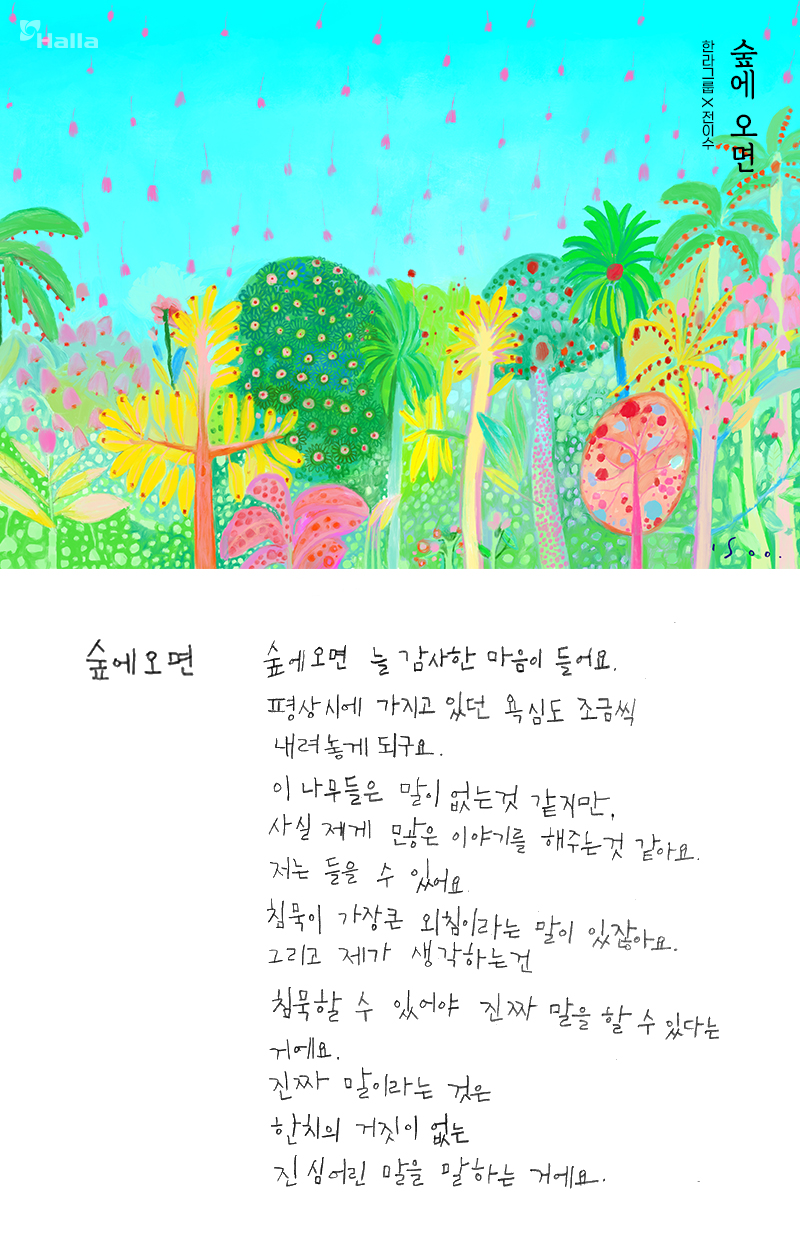 Halla
숲에 오면
한라그룹 X 전이수
'Soo.
숲에오면
숲에오면 늘 감사한 마음이 들어요.
평상시에 가지고 있던 욕심도 조금씩
내려놓게 되구요.
이 나무들은 말이 없는것 같지만,
사실 제게 많은 이야기를 해주는것 같아요.
저는 들을 수 있어요.
침묵이 가장큰 외침이라는 말이 있잖아요.
그리고 제가 생각하는건
침묵할 수 있어야 진짜 말을 할 수 있다는
거에요.
진짜 말이라는 것은
한치의 거짓이 없는
진심어린 말을 말하는 거에요.